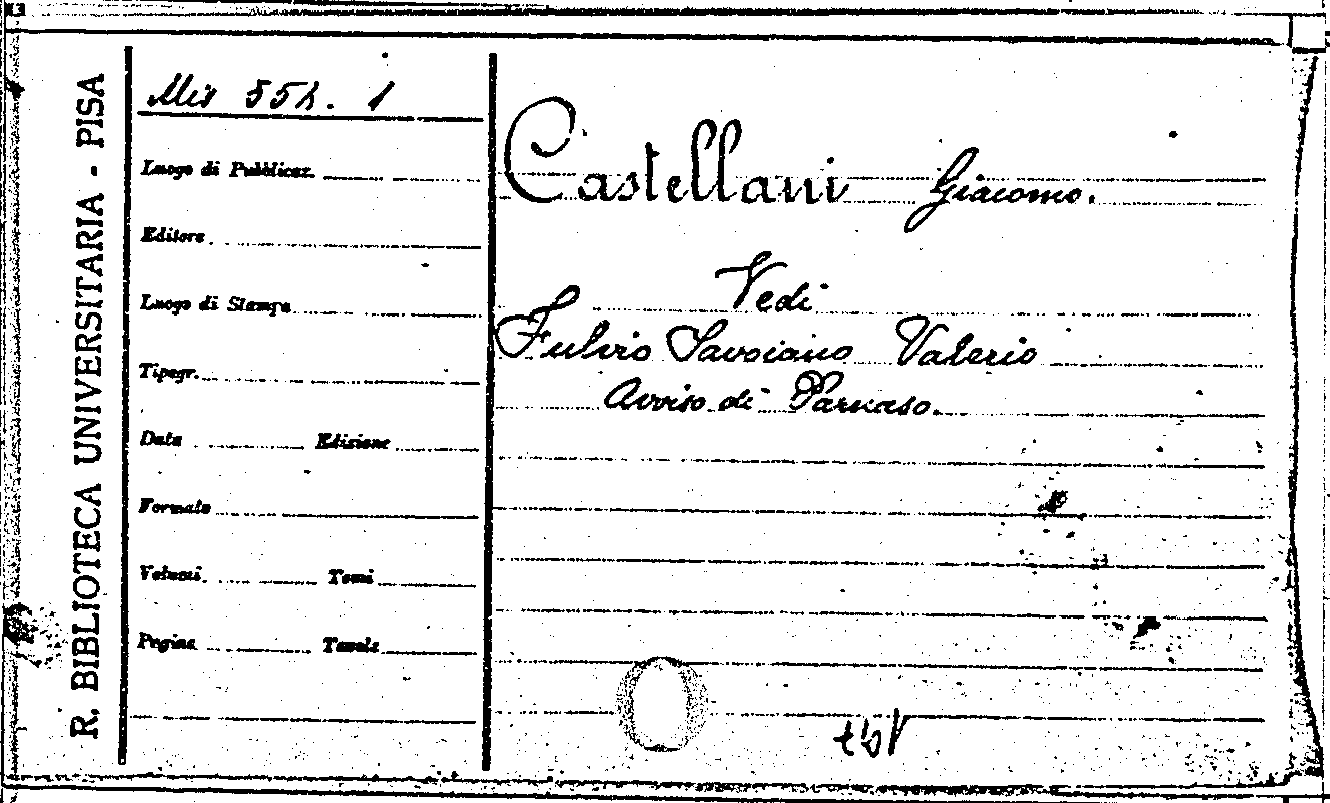 R. BIBLIOTECA UNIVERSITARIA - PISA
Mis 552. 1
Luogo di Pubblicaz.
Editore
Luogo di Stampa
Tipogr.
Data Edizione
Formato
Volumi Tomi
Pagine Tavole
Castellani Giacomo.
Vedi
Fulvio Savoiano Valerio
Avviso di Parnaso.